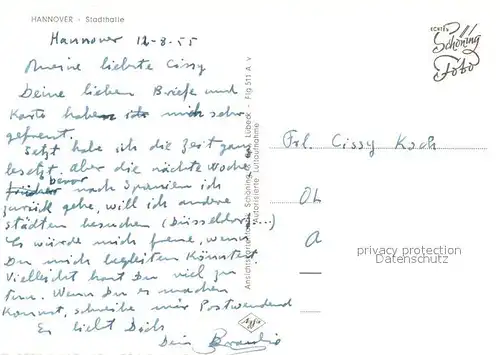 HANNOVER - Stadthalle
Hannover 12-8-55
Meine liebste Cissy
Deine lieben Briefe und
Karte haben mich sehr
gefreut.
Jetzt habe ich die Zeit ganz
besetzt. Aber die nächte Woche
bevor nach Spanien ich
zurück gehe, will ich andere
städten besuchen (Düsseldorf...)
Es würde mich freue, wenn
Du mich begleiten könntest.
Vielleicht hast Du viel zu
tun. Wenn Du es machen
kannst, schreibe mir Postwendend
Es liebt Dich
Dein
Ansichtskartenfabrik Schöning & Co., Lübeck - Flg 511 A. V
Autorisierte Luftaufnahme
Agfa
ECHTES
Schöning
Foto
Frl. Cissy Koch
privacy protection
Datenschutz